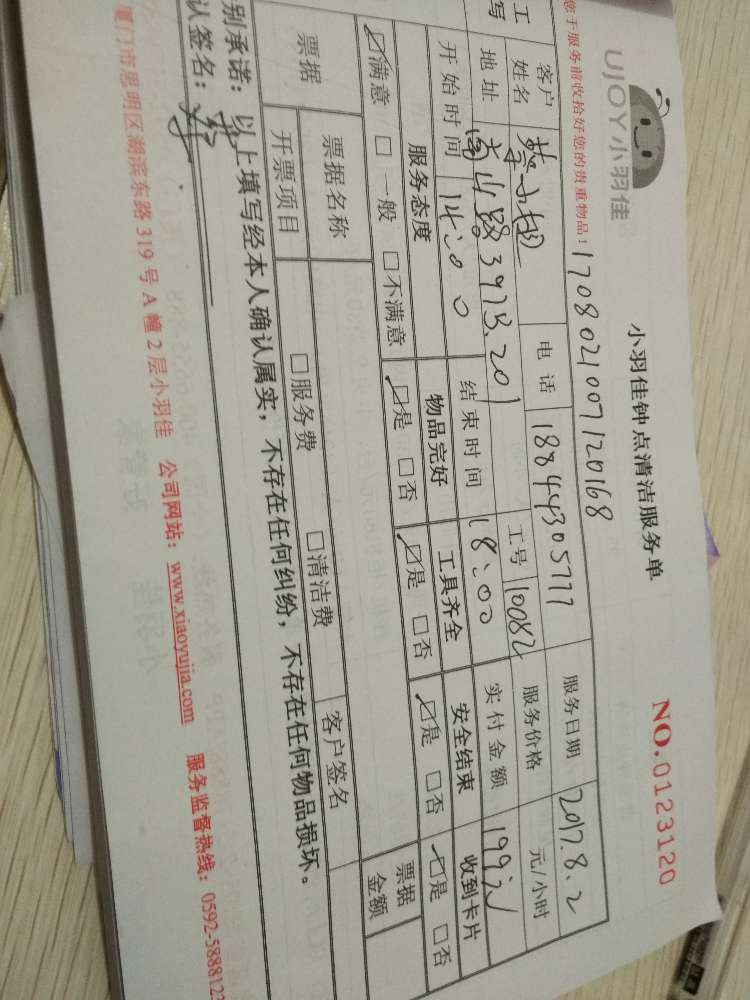 UJOY小羽佳
小羽佳钟点清洁服务单
NO.0123120
您于服务前收拾好您的贵重物品!
170802100712 0168
工 客户姓名 电话 18844305777 服务日期 2017.8.2
写 工号 10082 服务价格 元/小时
地址 3973.201 实付金额 199元
开始时间 14:00 结束时间 18:00
服务态度 物品完好 工具齐全 安全结束 收到卡片
☑满意 □一般 □不满意 ☑是 □否 ☑是 □否 ☑是 □否 ☑是 □否
票据 票据名称 □服务费 □清洁费 客户签名 票据金额
开票项目
别承诺:以上填写经本人确认属实,不存在任何纠纷,不存在任何物品损坏。
认签名:
厦门市思明区湖滨东路319号A幢2层小羽佳 公司网站:www.xiaoyujia.com 服务监督热线:0592-5888123